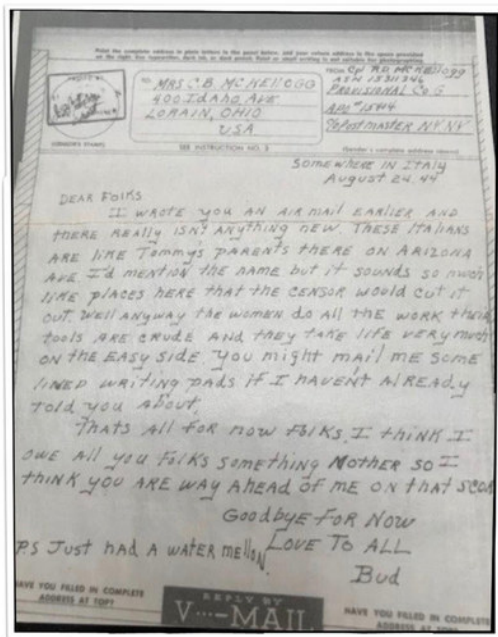 Print the complete address in plain letters in the panel below, and your return address in the space provided
on the right. Use typewriter, dark ink, or dark pencil. Faint or small writing is not suitable for photographing.
TO: MRS C.B. MCKELLOGG
400 IDAHO AVE
LORAIN, OHIO
U.S.A
FROM Cpl R.D. MCKELLOGG
ASN 15311346
PROVISIONAL CO G
APO # 15414
℅ POSTMASTER N.Y. N.Y
(CENSOR'S STAMP)
SEE INSTRUCTION NO. 2
(Sender's complete address above)
SOMEWHERE IN ITALY
AUGUST 24. 44
DEAR FOLKS
I WROTE YOU AN AIR MAIL EARLIER AND
THERE REALLY ISN'T ANYTHING NEW. THESE ITALIANS
ARE LIKE TOMMY'S PARENTS THERE ON ARIZONA
AVE I'd MENTION THE NAME BUT IT SOUNDS SO MUCH
LIKE PLACES HERE THAT THE CENSOR WOULD CUT IT
OUT. WELL ANYWAY THE WOMEN DO ALL THE WORK THEIR
TOOLS ARE CRUDE AND THEY TAKE LIFE VERY MUCH
ON THE EASY SIDE. YOU MIGHT MAIL ME SOME
LINED WRITING PADS IF I HAVEN'T ALREADY
TOLD YOU ABOUT.
THATS ALL FOR NOW FOLKS. I THINK I
OWE ALL YOU FOLKS SOMETHING MOTHER SO I
THINK YOU ARE WAY AHEAD OF ME ON THAT SCOR
GOODBYE FOR NOW
P.S JUST HAD A WATER MELLON.
LOVE TO ALL
BUD
HAVE YOU FILLED IN COMPLETE
ADDRESS AT TOP?
REPLY BY
V···—MAIL
HAVE YOU FILLED IN COMPLETE
ADDRESS AT TOP?